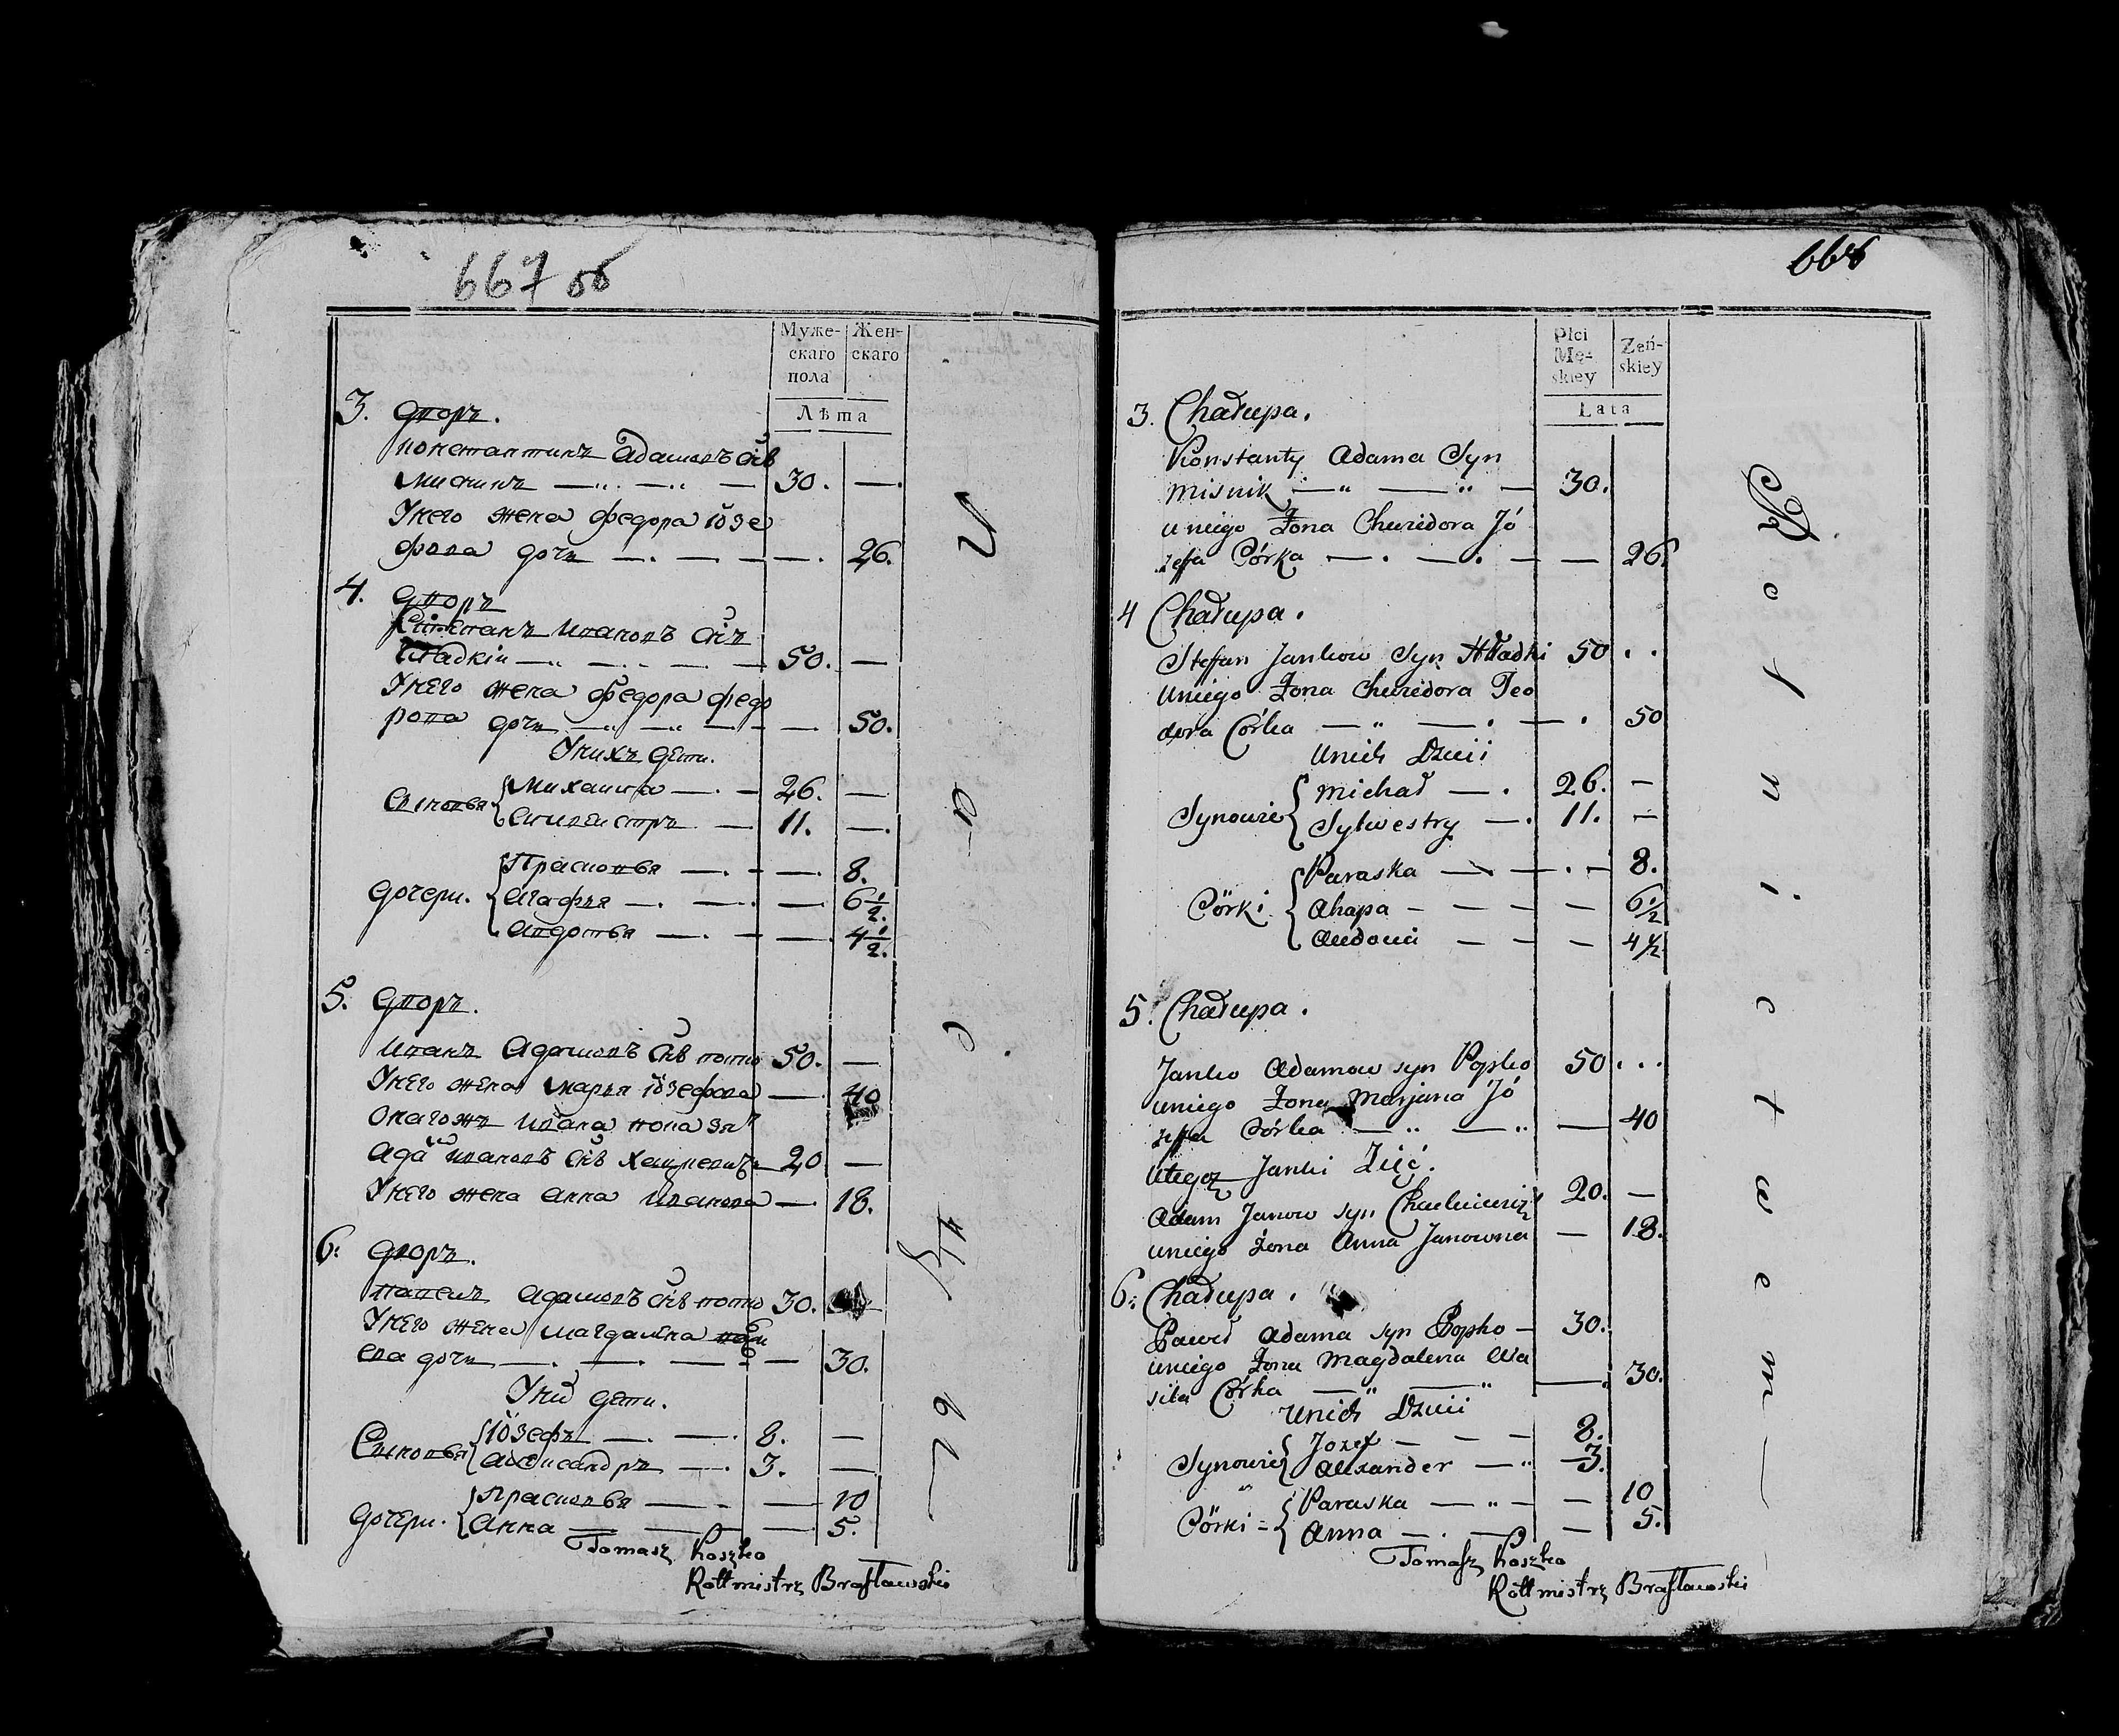 667 об
Муже-
скаго
пола
Жен-
скаго
Лѣта
3. Дворъ.
Константинъ Адамовъ снъ
Мисникъ 30. —
У него жена Федора Іозе
фова дочь — 26.
4. Дворъ
Стефанъ Ивановъ снъ
Гладкіи 50. —
У него жена Федора Федо
рова дочь — 50.
У нихъ дети.
Сыновья Михаила 26. —
Силвестръ 11. —
Дочери. Прасковья — 8.
Агафья — 6 1/2.
Авдотья — 4 1/2.
5. Дворъ.
Иванъ Адамовъ снъ Попко 50. —
У него жена Марья Іозефова — 40
Онагожъ Ивана
Ада Ивановъ снъ 20 —
У него жена Анна Иванова — 18.
6. Дворъ.
Павелъ Адамовъ снъ Попко 30.
У него жена Магдалена
ева дочь — 30.
У них дети.
Сыновья Іозефъ 8. —
Александръ 3. —
Дочери. Прасковья — 10
Анна — 5.
Tomasz Koszko
Rottmistrz Brasławski
668
Płci
Mę-
skiey
Zeń-
skiey
Lata
3. Chałupa.
Konstanty Adama Syn
Misnik 30.
u niego Żona Chwiedora Jó
zeffa Córka — 26.
4 Chałupa.
Steffan Jankow Syn Hładki 50 . .
u niego Żona Chwiedora Teo
dora Córka 50
u nich Dzieci
Synowie Michał 26. —
Sylwestry 11. —
Córki Paraska 8.
Ahapa — 6 1/2
Audocia — 4 1/2
5. Chałupa.
Janko Adamow syn Popko 50 . . .
u niego Żona Marjana Jó
zeffa Córka — 40
u tegoż Janki Zięć.
Adam Janow syn 20. —
u niego żona Anna Janowna — 18.
6. Chałupa.
Paweł Adama syn Popko — 30.
u niego Żona Magdalena Wa
sila Córka — 30.
u nich Dzieci
Synowie Jozef 8.
Alexander 3.
Córki Paraska — 10
Anna — 5.
Tomasz Koszko
Rottmistrz Brasławski